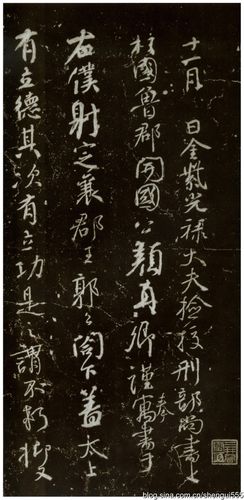 十一月 日金紫光祿大夫檢校刑部尚書上
柱國魯郡開國公顏真卿謹奉寓書于
右僕射定襄郡王郭公閤下蓋太上
有立德其次有立功是之謂不朽抑又
blog.sina.com.cn/shengui555